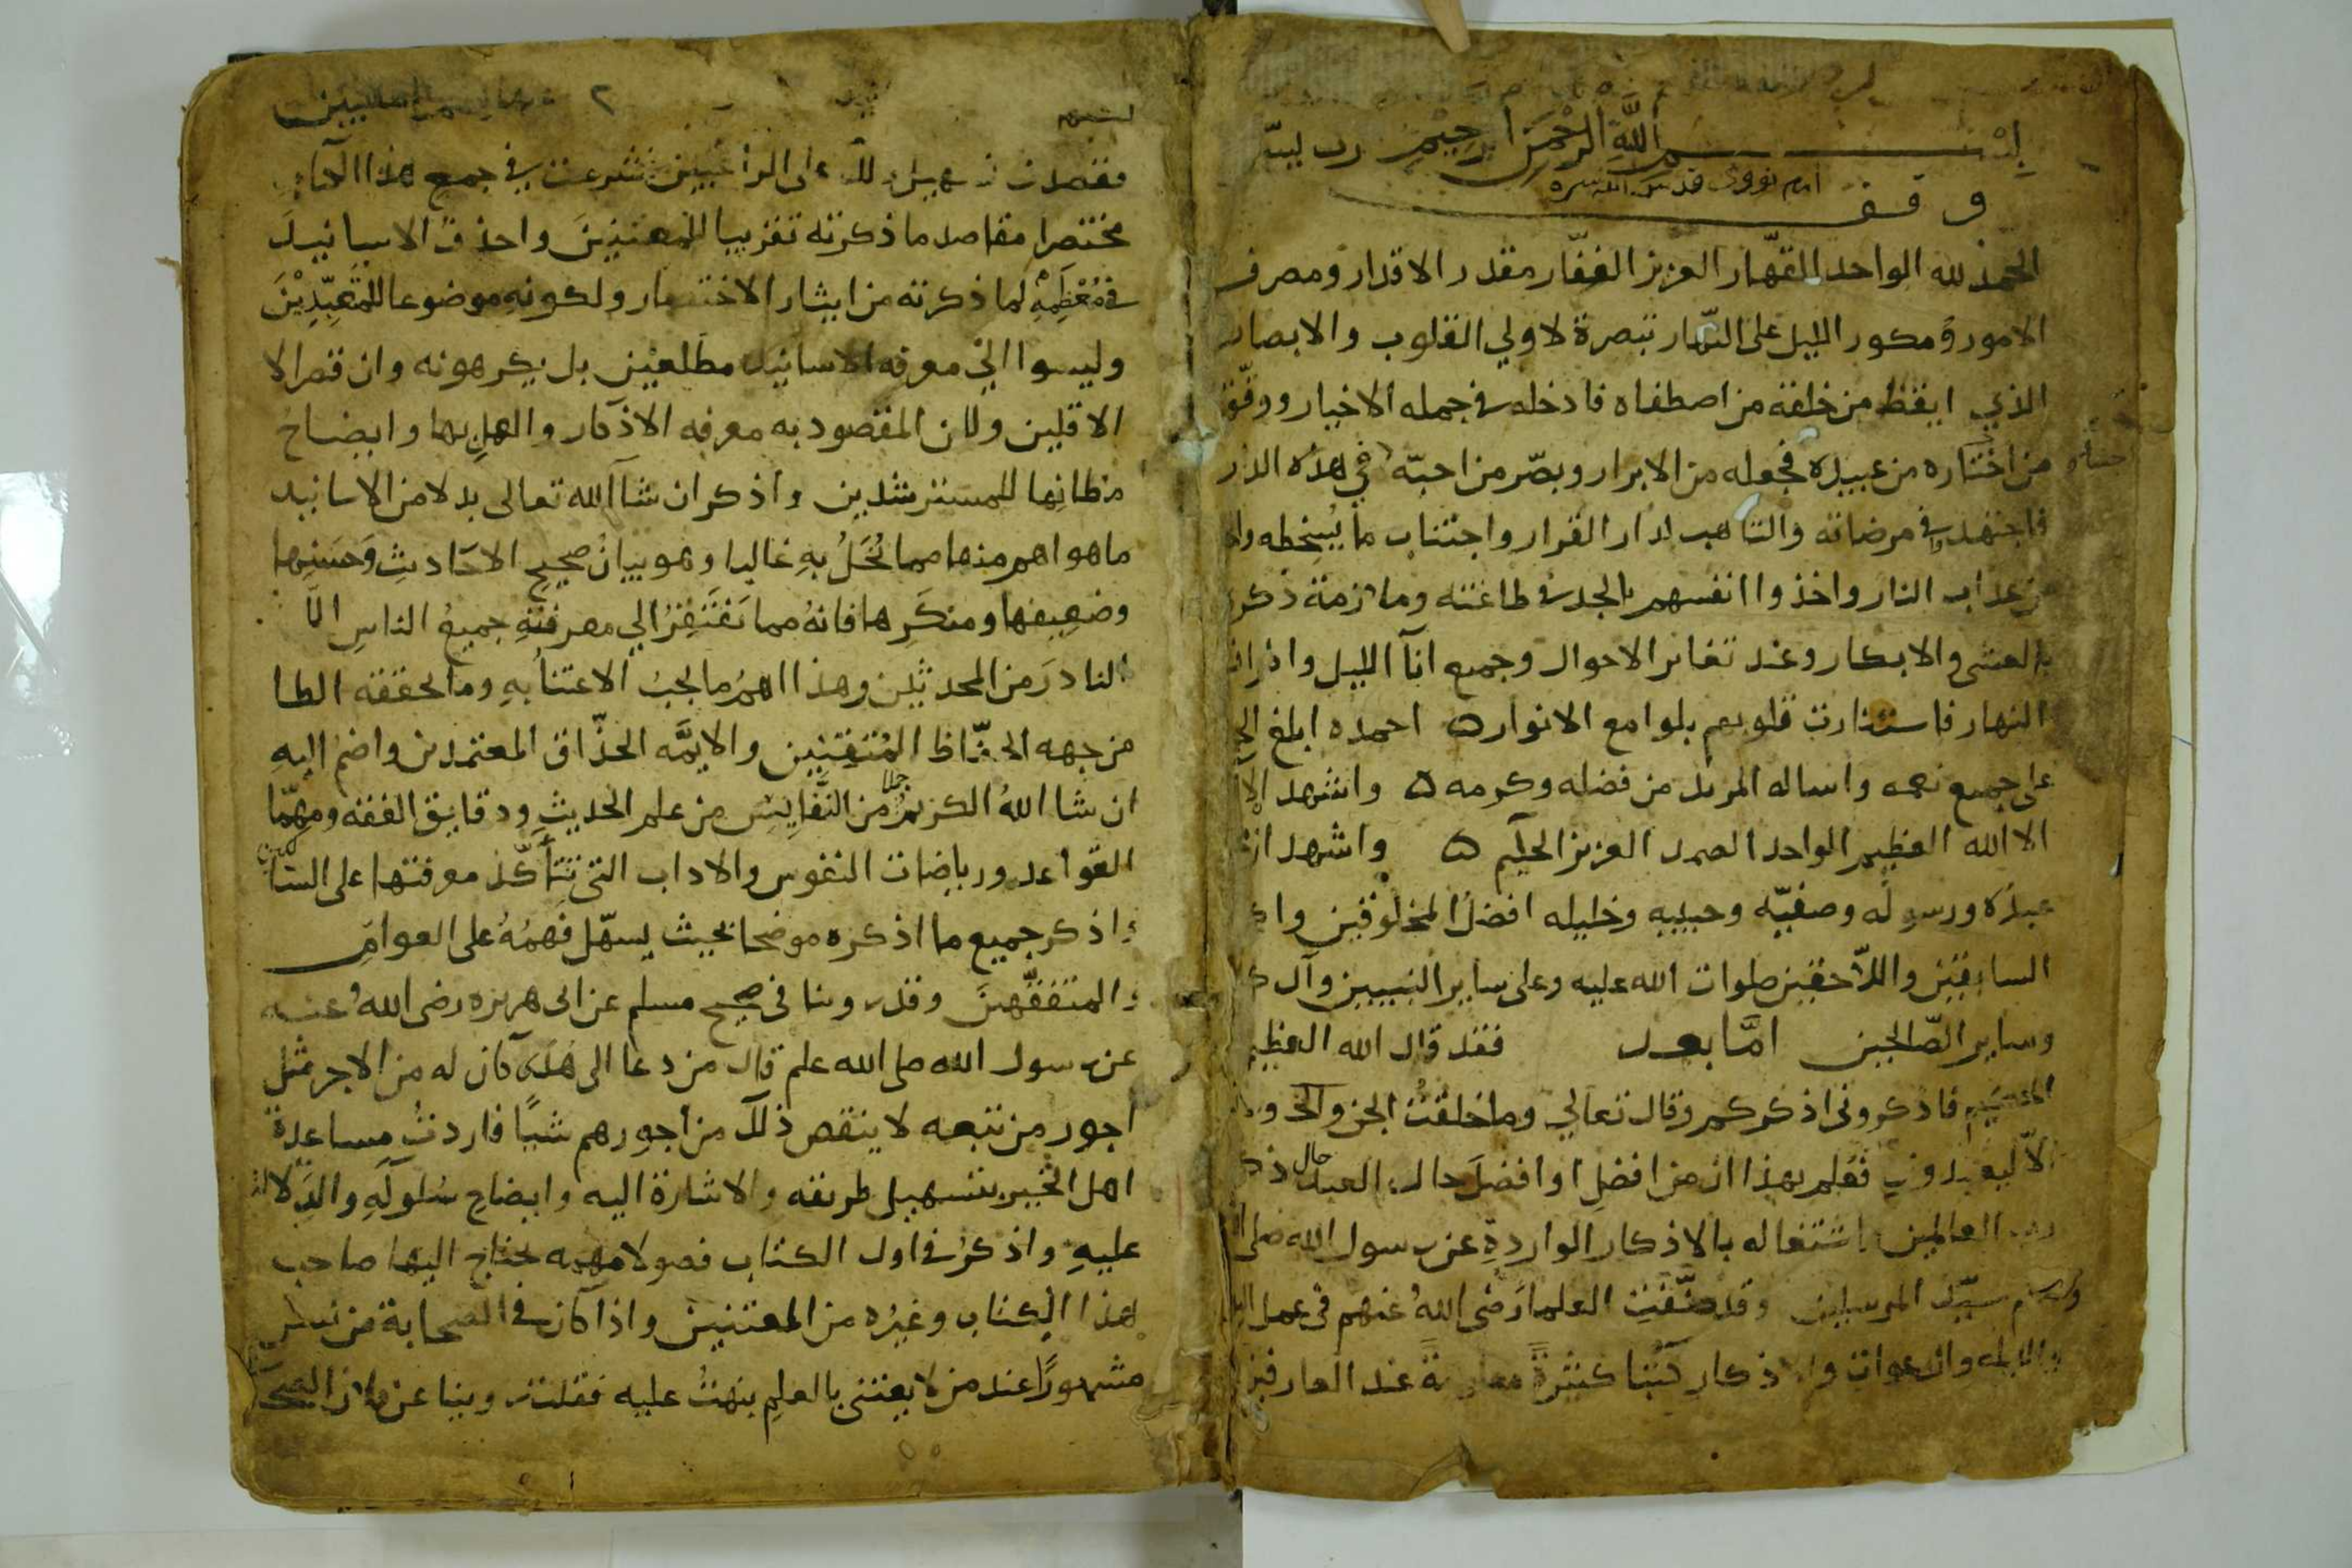 بسم الله الرحمن الرحيم رب يسر
امام نووى قدس الله سره
وقف
الحمد لله الواحد القهّار العزيز الغفّار مقدر الاقدار ومصرف
الامور ومكور الليل على النّهار تبصرة لاولي القلوب والابصار
الذي ايقظ من خلقه من اصطفاه فادخله في جمله الاخيار ووفّق
من اختاره من عبيده فجعله من الابرار وبصّر من احبّه في هذه الدار
فاجتهد في مرضاته والتاهب لدار القرار واجتناب ما يُسخطه
من عذاب النار واخذوا انفسهم بالجد في طاعته وملازمة ذكر
بالعشى والابكار وعند تغاير الاحوال وجميع انآ الليل و
النهار فاستنارت قلوبهم بلوامع الانوار ۵ احمده ابلغ
على جميع نعمه واساله المزيد من فضله وكرمه ۵ واشهد
الا الله العظيم الواحد الصمد العزيز الحكيم ۵ واشهد ان
عبده ورسوله وصفيّه وحبيبه وخليله افضل المخلوقين
السابقين واللاّحقين صلوات الله عليه وعلى ساير النبيين وآل
وساير الصّالحين امَّا بعد فقد قال الله العظيم
فاذكرونى اذكركم وقال تعالي وما خلقتُ الجن
الاّ ليعبدونِ فعُلم بهذا ان من افضلِ او افضلَ حال العبد حال
رب العالمين اشتغاله بالاذكار الواردةِ عن رسول الله صلى
وسلم سيّد المرسلين وقد صنّفتِ العلما رَضى اللهُ عنهم فى عمل
والليله والدعوات والاذكار كتُبًا كثيرةً معلومةً عند العارفين
فقصدت تسهيل ذلك على الراغبين فشرعت في جمع هذا الكتاب
مختصرا مقاصد ما ذكرته تقريبا للمعتنين واحذف الاسانيد
في مُعْظَمِهْ لما ذكرته من ايثار الاختصار ولكونهِ موضوعا للمتعبّدِيْنَ
وليسوا الي معرفه الاسانيد مطلعين بل يكرهونه وان قصر الا
الاقلين ولان المقصود به معرفه الاذكار والعملِ بها وايضاح
مظانها للمسترشدين واذكر ان شاآلله تعالى بدلا من الاسانيد
ما هو اهم منها مما يُخَلُ بهِ غالبا وهو بيانُ صحيح الاحَاديثِ وحَسَنِها
وضعِيفها ومنكَرِها فانهُ مما يَفْتَقِرُ الي معرفتهِ جميعُ الناسِ الا
النادرَ من المحدثين وهذا اهمُ ما يجبُ الاعتنأ بهِ وما يحققه الطا
من جهه الحفّاظ المُتقِنِين والايمَّه الحذّاق المعتمدين واضم اليهِ
ان شا اللهُ الكريمُ جملا من النَّفايِس من علم الحديثِ ودقايق الفقه ومهِمّا
القواعد ورياضات النفوس والاداب التى تتأكّد معرفتها على السا لكين
واذكر جميع ما اذكره موضحا بحيث يسهّل فهمُهُ على العوامِ
والمتفقّهينَ وقد روينا فى صحيح مسلم عن ابى هريره رضى اللهُ عنه
عن رسول الله صلى الله علم قال من دعا الى هُدًى كان له من الاجر مثل
اجور من تبعه لا ينقص ذلك من اجورهم شيًا فاردتُ مساعدة
اهل الخير بتسهيل طريقه والاشارة اليه وايضاح سُلوكهِ والدّلالة
عليهِ واذكرُ في اول الكتاب فصولا مهمه يحتاج اليها صاحب
هذا الكتاب وغيرُه من المعتنين واذا كان في الصحابة من ليس
مشهورًا عند من لا يعتنى بالعلمِ نبهتُ عليه فقلت روينا عن فلان الصحا